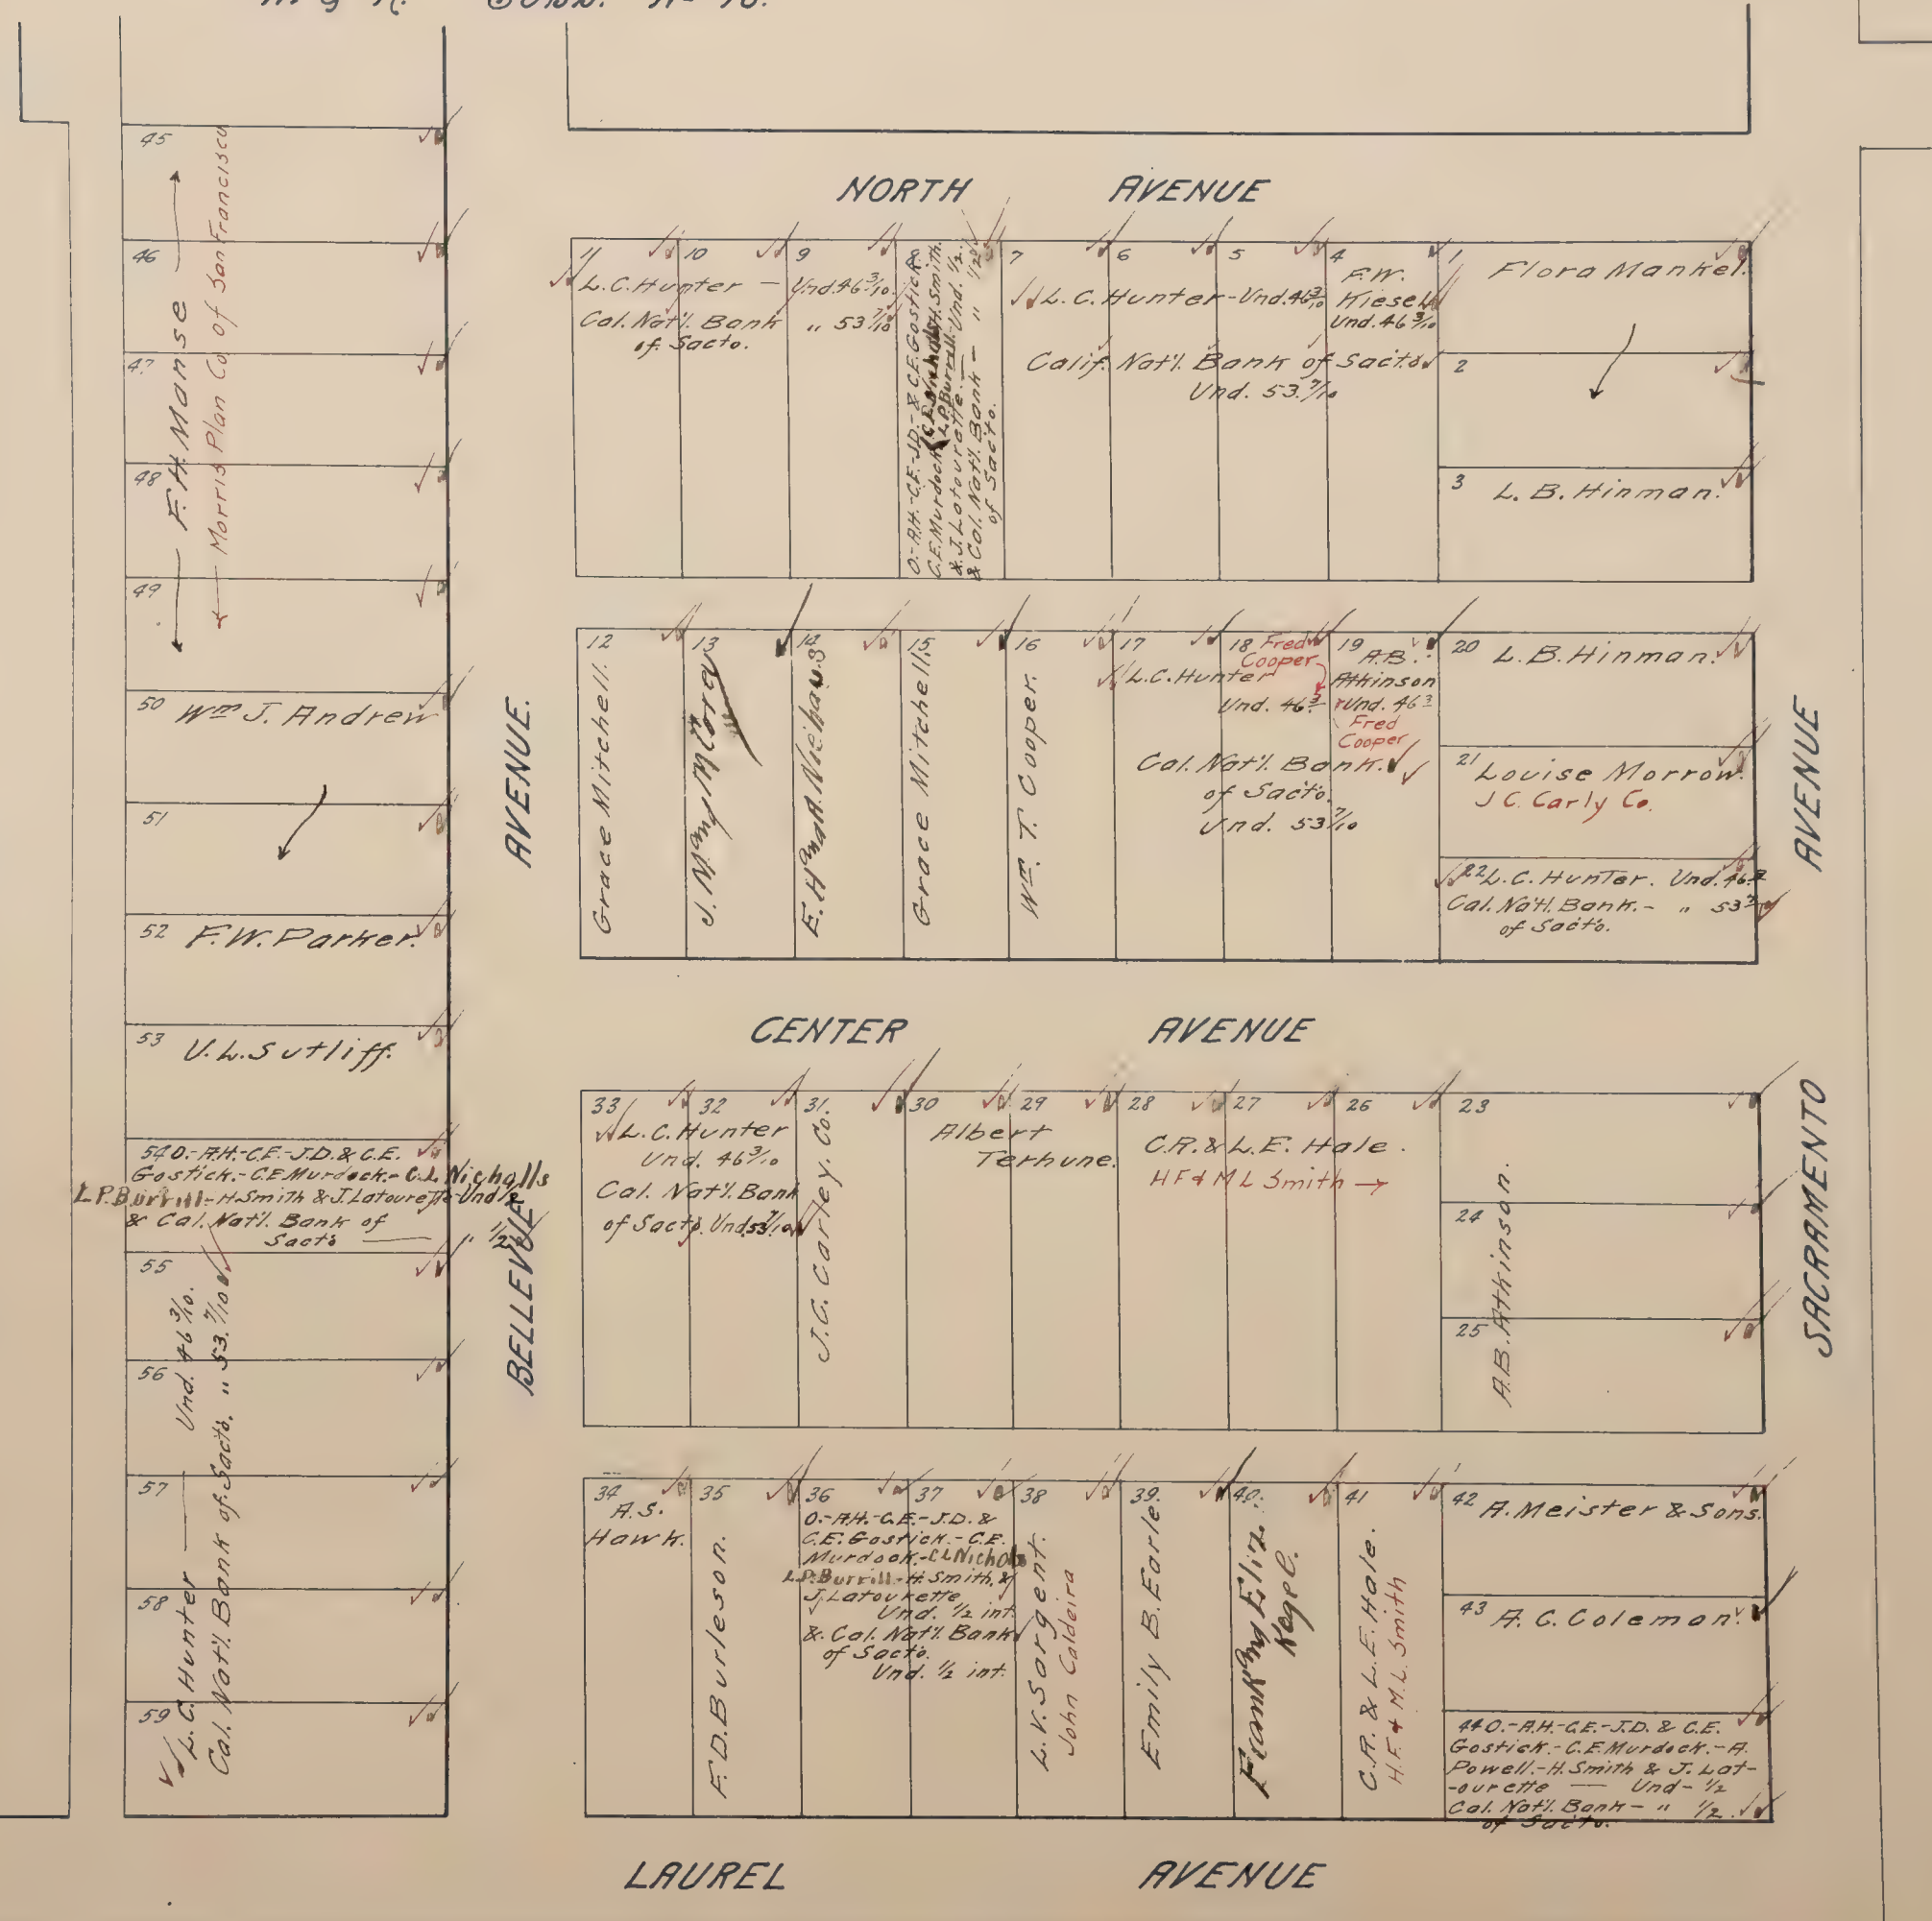 NORTH AVENUE
45
46
47
48
49
F.H. Manse
Morris Plan Co of San Francisco
50 Wm J. Andrew
51
52 F.W. Parker.
53 V.L. Sutliff.
54 O.-A.H.-C.E.-J.D. & C.E.
Gostick.-C.E. Murdock.-C.L. Nicholls
L.P. Burrill-H. Smith & J. Latourette-Und ½
& Cal. Nat'l. Bank of
Sacto — " ½
55
56
57
58
59
L.C. Hunter — Und. 46 3/10.
Cal. Nat'l. Bank of Sacto. " 53. 7/10
BELLEVUE AVENUE.
11 10 9
L.C. Hunter — Und. 46 3/10
Cal. Nat'l. Bank " 53 7/10
of Sacto.
8
O.-A.H.-C.E.-J.D.-& C.E. Gostick.
C.E. Murdock
H. Smith.
L.P. Burrill-Und. ½.
& J. Latourette.
& Col. Nat'l. Bank — " ½
of Sacto.
7 6 5
L.C. Hunter-Und. 46 3/10
4
F.W.
Kiesel
Und. 46 3/10
Calif. Nat'l. Bank of Sacto
Und. 53. 7/10
1 Flora Mankel.
2
3 L.B. Hinman.
12 Grace Mitchell.
13
14
15 Grace Mitchell.
16 Wm. T. Cooper.
17 18
L.C. Hunter
Und. 46 3
Fred
Cooper
19 A.B.
Atkinson
Und. 46 3
Fred
Cooper
Cal. Nat'l. Bank.
of Sacto.
Und. 53 7/10
20 L.B. Hinman.
21 Louise Morrow.
J C. Carly Co.
22 L.C. Hunter. Und. 46.
Cal. Nat'l. Bank.- " 53
of Sacto.
CENTER AVENUE
33 32
L.C. Hunter
Und. 46 3/10
Cal. Nat'l. Bank
of Sacto. Und. 53. 7/10
31. J.C. Carley. Co.
30 29
Albert
Terhune.
28 27 26
C.R. & L.E. Hale.
H F & M L Smith →
23
24
25
A.B. Atkinson.
SACRAMENTO AVENUE
34
A.S.
Hawk.
35 F.D. Burleson.
36 37
O.-A.H.-C.E.-J.D. &
C.E. Gostick.-C.E.
Murdock.-C L Nichols
L.P. Burrill-H. Smith, &
J. Latourette
Und. ½ int.
& Cal. Nat'l. Bank
of Sacto.
Und. ½ int.
38 L.V. Sargent.
John Caldeira
39. Emily B. Earle
40. Frank and Eliz.
41 C.R. & L.E. Hale.
H.F. & M.L. Smith
42 A. Meister & Sons.
43 A.C. Coleman.
44 O.-A.H.-C.E.-J.D. & C.E.
Gostick.-C.E. Murdock.-A.
Powell.-H. Smith & J. Lat-
-ourette — Und- ½
Cal. Nat'l. Bank — " ½.
of Sacto.
LAUREL AVENUE